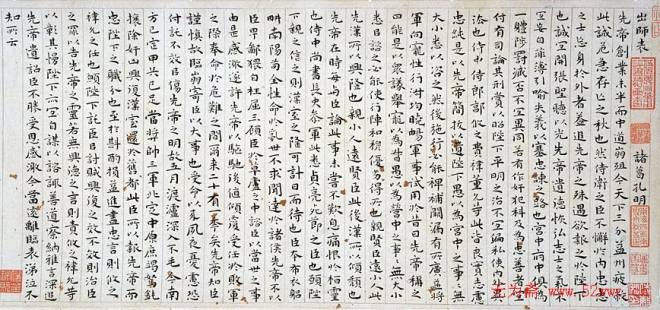 出師表 諸葛孔明
先帝創業未半而中道崩殂今天下三分益州疲敝
此誠危急存亡之秋也然侍衛之臣不懈於內忠志
之士忘身於外者蓋追先帝之殊遇欲報之於陛下
也誠宜開張聖聽以光先帝遺德恢弘志士之氣不
宜妄自菲薄引喻失義以塞忠諫之路也宮中府中俱為
一體陟罰臧否不宜異同若有作奸犯科及為忠善者宜
付有司論其刑賞以昭陛下平明之治不宜偏私使內外異
法也侍中侍郎郭攸之費禕董允等此皆良實志慮忠
純是以先帝簡拔以遺陛下愚以為宮中之事事無
大小悉以咨之然後施行必能裨補闕漏有所廣益將
軍向寵性行淑均曉暢軍事試用於昔日先帝稱之
曰能是以眾議舉寵以為督愚以為營中之事事無大小
悉以咨之必能使行陣和穆優劣得所也親賢臣遠小人此
先漢所以興隆也親小人遠賢臣此後漢所以傾頹也
先帝在時每與臣論此事未嘗不歎息痛恨於桓靈
也侍中尚書長史參軍此悉貞亮死節之臣也願陛
下親之信之則漢室之隆可計日而待也臣本布衣躬
耕南陽苟全性命於亂世不求聞達於諸侯先帝不以
臣卑鄙猥自枉屈三顧臣於草廬之中諮臣以當世之事
由是感激遂許先帝以驅馳後值傾覆受任於敗軍
之際奉命於危難之間爾來二十有一年矣先帝知臣
謹慎故臨崩寄臣以大事也受命以來夙夜憂慮恐
付託不效以傷先帝之明故五月渡瀘深入不毛今南
方已定甲兵已足當獎帥三軍北定中原庶竭駑鈍
攘除奸凶興復漢室還於舊都此臣所以報先帝而
忠陛下之職分也至於斟酌損益進盡忠言則攸之
禕允之任也願陛下託臣以討賊興復之效不效則治臣
之罪以告先帝之靈若無興德之言則責攸之禕允等
之咎以彰其慢陛下亦宜自謀以諮諏善道察納雅言深追
先帝遺詔臣不勝受恩感激今當遠離臨表涕泣不
知所云